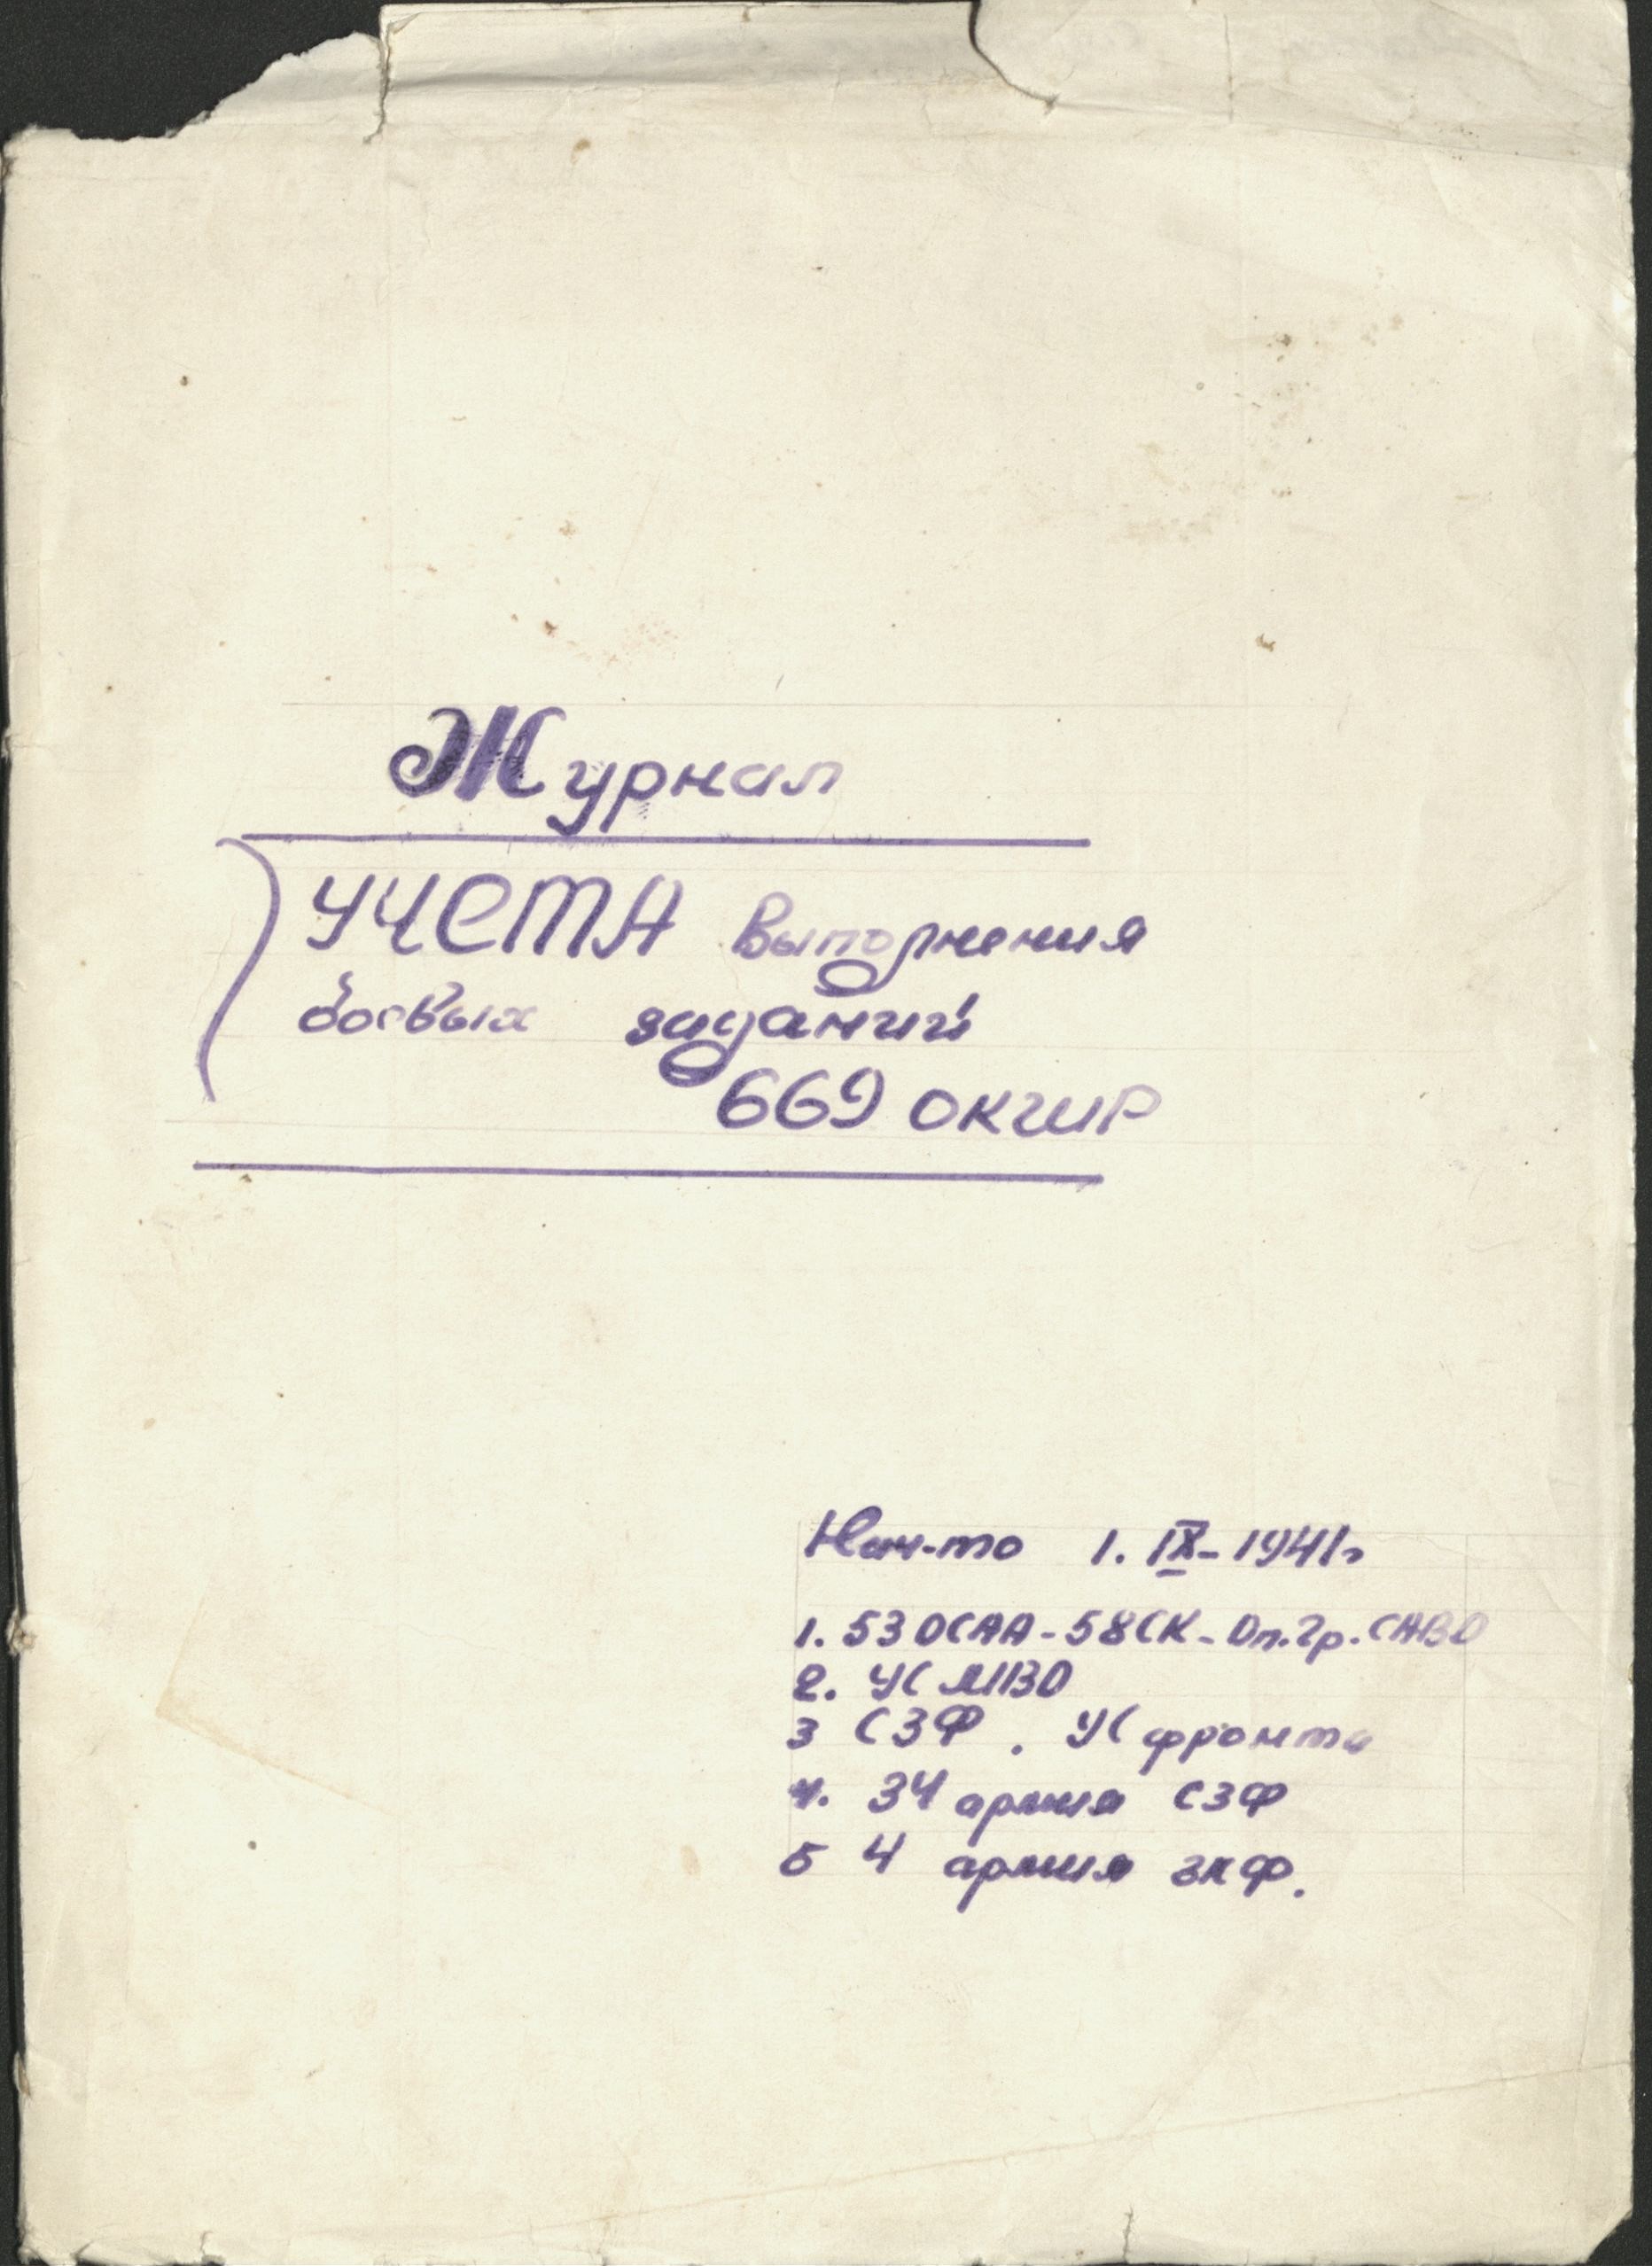 Журнал
УЧЕТА Выполнения
боевых заданий
669 ОКШР
Нач-то 1. IX - 1941г
1. 53 ОСАА - 58СК - Оп.гр. САВО
2. УС МВО
3 СЗФ. УС фронта
4. 34 армия СЗФ
5 4 армия ЗКФ.